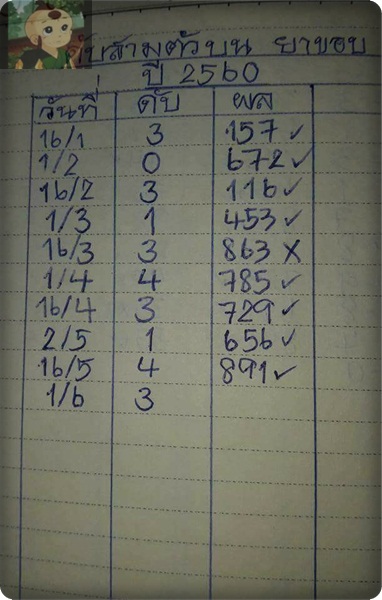 ดับสามตัวบน ยาขอบ
ปี 2560
วันที่ ดับ ผล
16/1 3 157 ✓
1/2 0 672 ✓
16/2 3 116 ✓
1/3 1 453 ✓
16/3 3 863 X
1/4 4 785 ✓
16/4 3 729 ✓
2/5 1 656 ✓
16/5 4 891 ✓
1/6 3